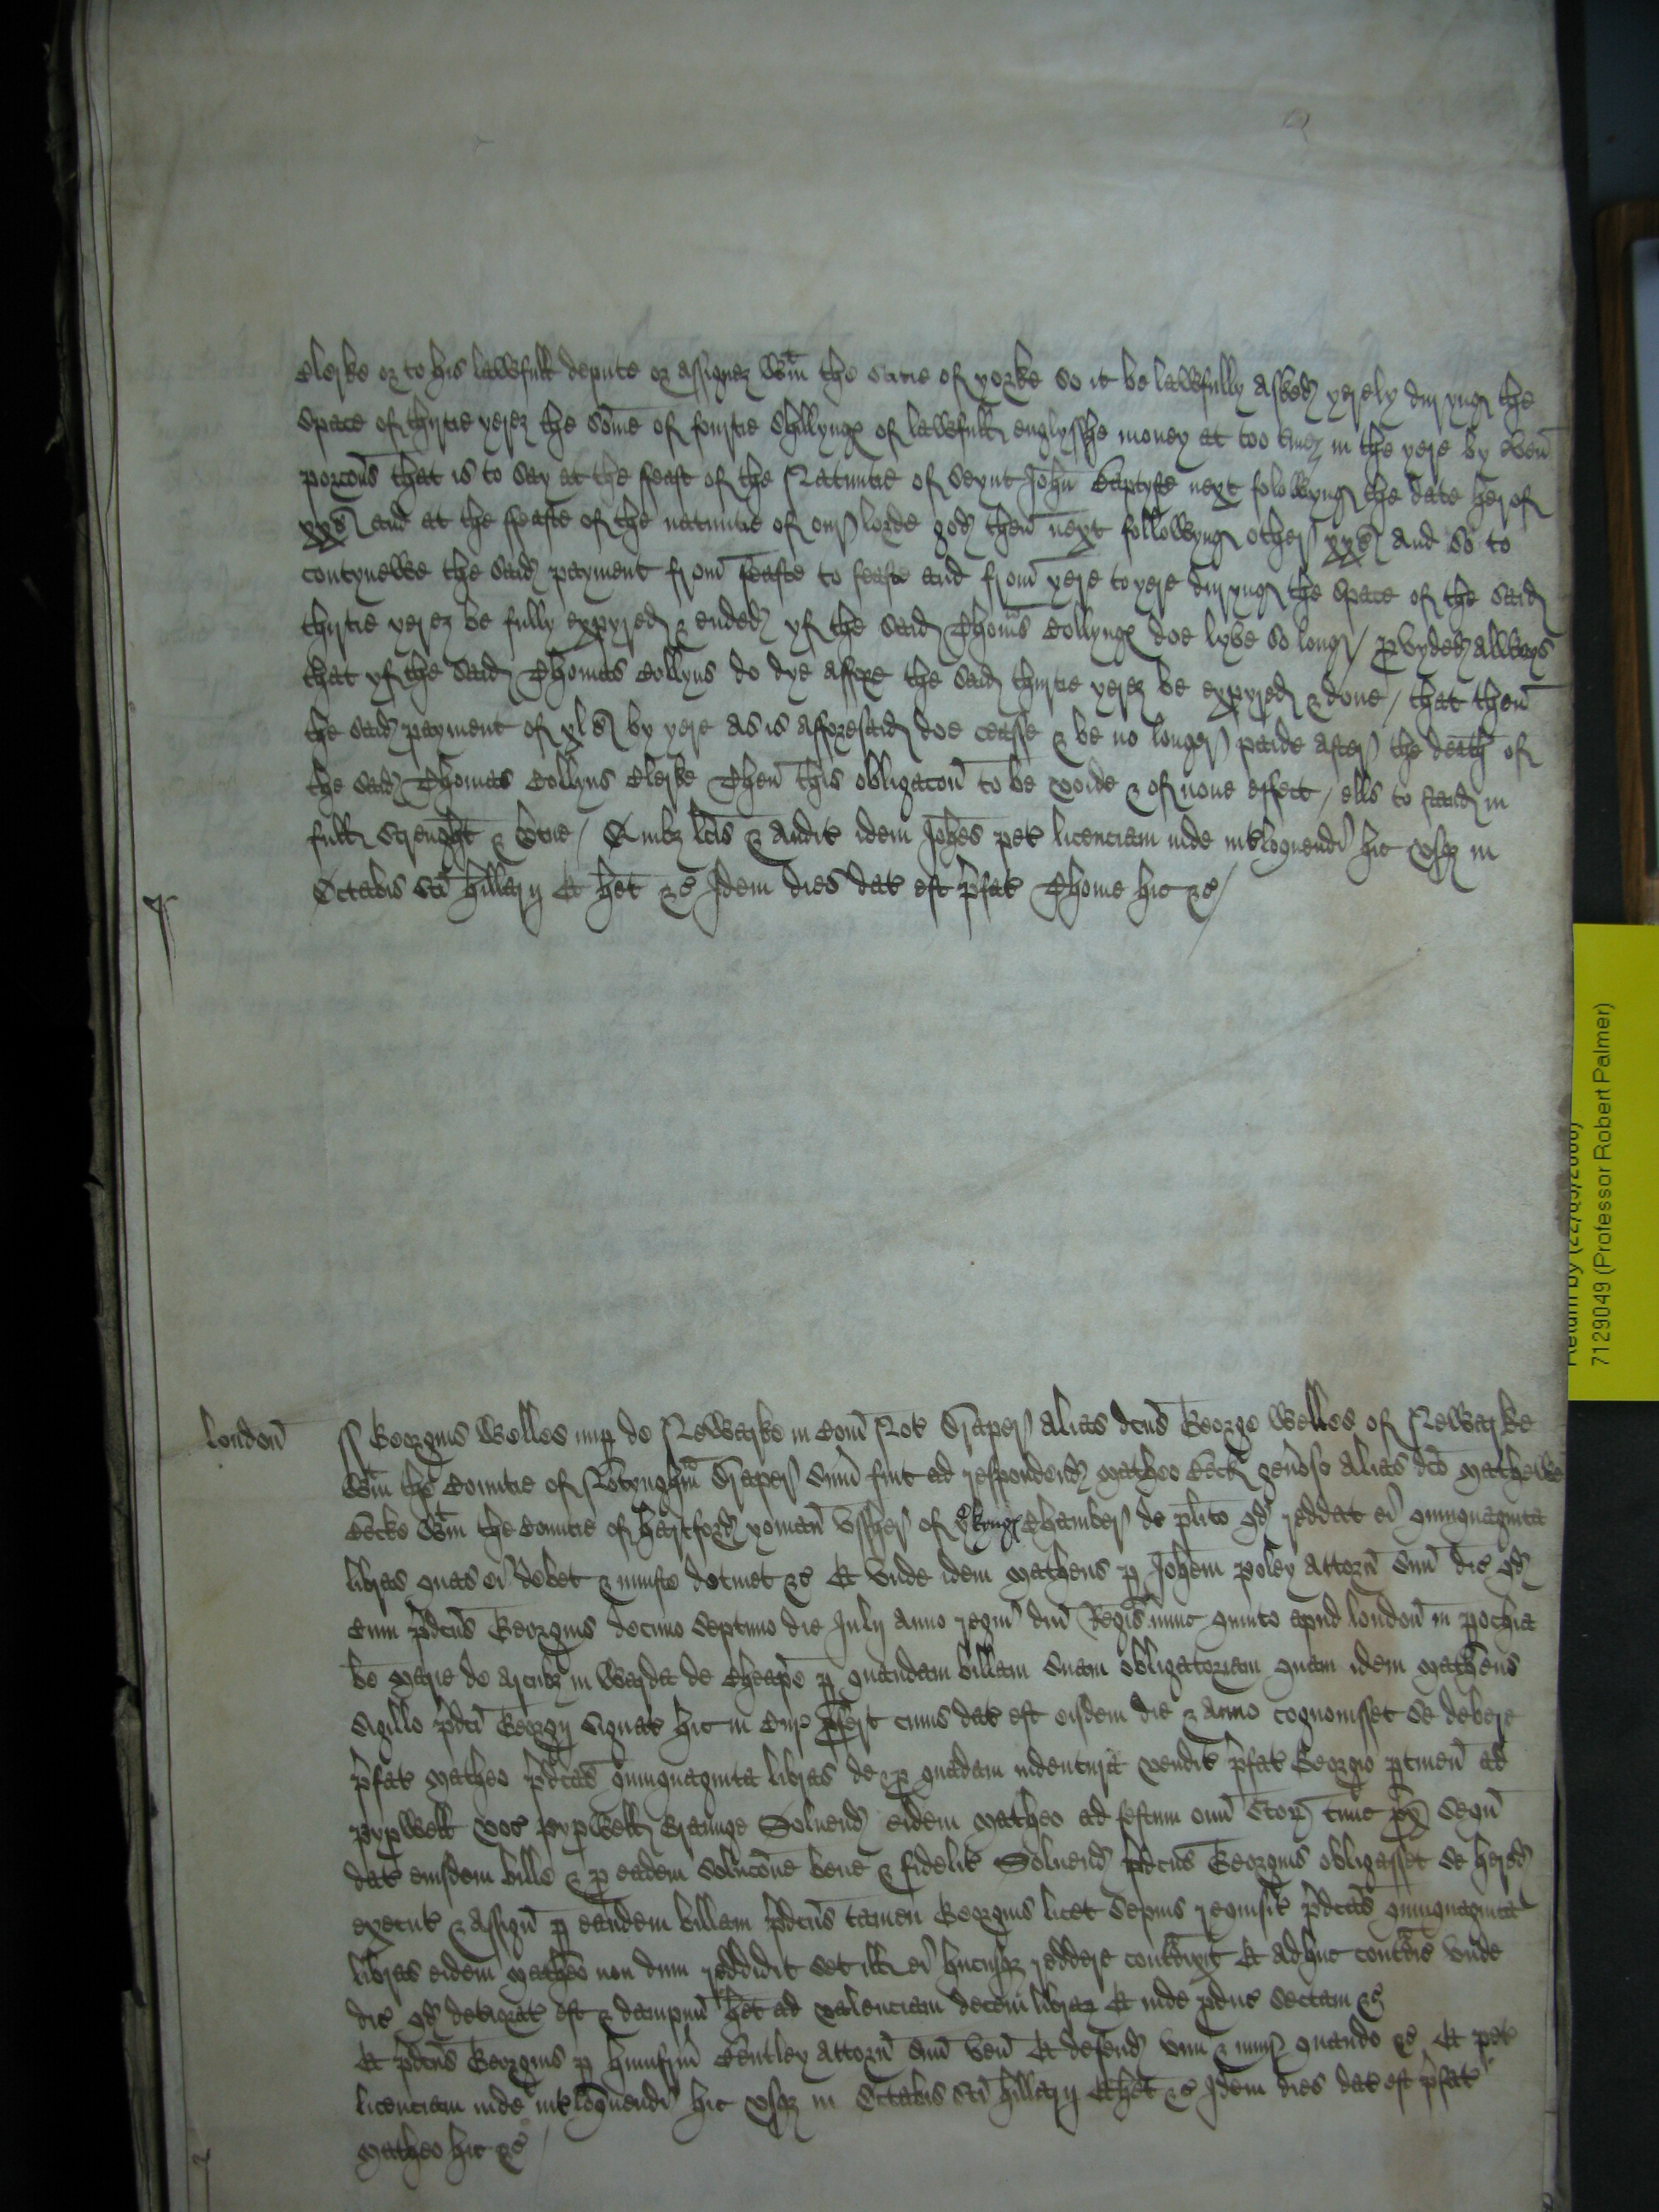 Clerke or to his lawfull depute or assignez wtin the Citie of yorke so it be lawfully asked yerely duryng the
space of thirtie yerez the some of fourtie shillyngs of lawfull englysshe money at too tymez in the yere by even
porcons that is to say at the feast of the Natiuitie of seynt John Baptyste next folowyng the date herof
xxs and at the ffeaste of the natiuitie of our lorde god then next followyng other xxs And so to
contynewe the said payment from feaste to feaste and from yere to yere duryng the space of the said
thirtie yerez be fully expyred & ended yf the said Thomas Collyngs doe lyve so long / pvyded allways
that yf the said Thomas Collyns do dye affore the said thirtie yerez be expyred & done / that then
the said payment of xls by yere as is afforesaid doe ceasse & be no longer paide after the death of
the said Thomas Collyns Clerke Then this obligacon to be voide & of none effect / ells to stand in
full strenght & vtue / Quibz lcis & audit idem Johes pet licenciam inde intloquendi hic usqz in
Octabis sci hillarij Et het &c Idem dies dat est pfat Thome hic &c /
london ss Georgius Welles nup de Newarke in Com Not Draper alias dcus George Welles of Newarke
wtin the Countie of Notynghm Draper sum fuit ad respondend Matheo Beck genoso alias dco Mathewe
Becke wtin the Countie of hartford yoman vssher of ye kyngs Chamber de plito qd reddat ei quinquaginta
libras quas ei debet & iniuste detinet &c Et unde idem Matheus p Johem poley attorn suu dic qd
cum pdcus Georgius decimo septimo die Julij anno regni dni Regis nunc quinto apud london in pochia
be Marie de arcubz in Warda de Cheape p quandam billam suam obligatoriam quam idem Matheus
sigillo pdci Georgij signat hic in Cur pfert cuius dat est eisdem die & anno cognouisset se debere
pfat Matheo pdcas quinquaginta libras de & p quadam indentura vendit pfat Georgio ptinen ad
pypwell voc pypwell Graunge Soluend eidem Matheo ad festum omi Scor tunc px sequ
dat eiusdem bille & p eadem solucone bene & fidelit Soluend pdcus Georgius obligasset se hered
execut & assign p eandem billam pdcus tamen Georgius licet sepius requisit pdcas quinquaginta
libras eidem Matheo non dum reddidit set ill ei hucusqz reddere contdixit Et adhuc contdic unde
dic qd deteriorat est & dampnu het ad valenciam decem librar Et inde pduc sectam &c
Et pdcus Georgius p humfrm Bentley attorn suu ven Et defend vim & iniur quando &c Et pet
licenciam inde intloquendi hic usqz in Octabis sci hillarij Et het &c Idem dies dat est pfat
Matheo hic &c /
Return by (22/05/2006)
7129049 (Professor Robert Palmer)